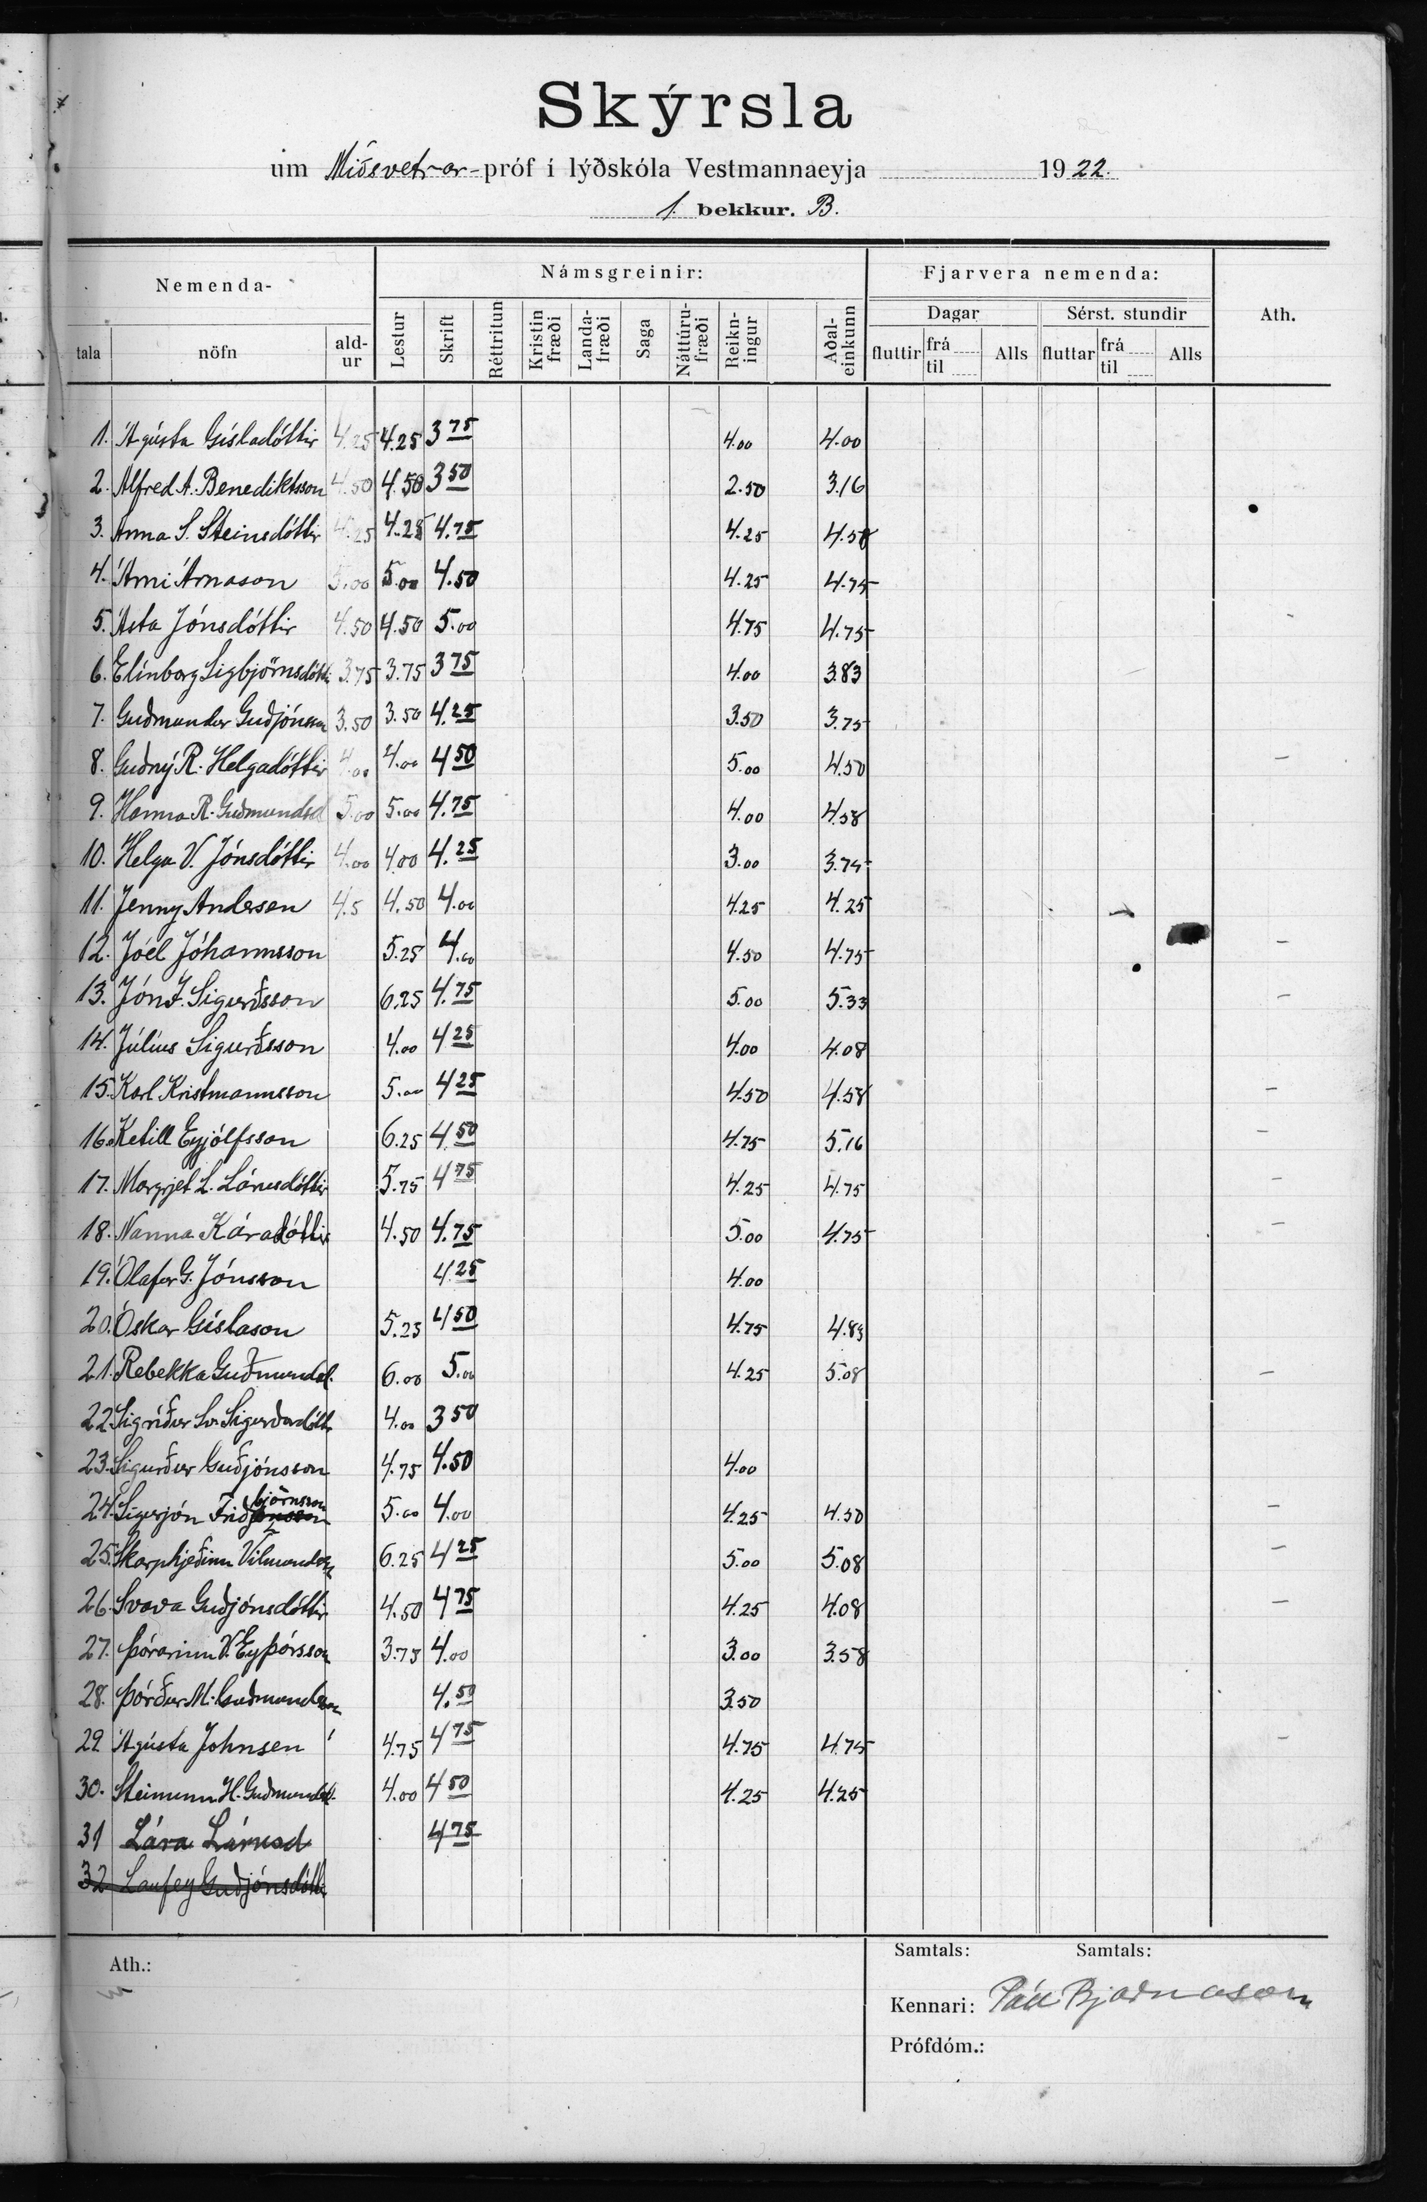 Skýrsla
um Miðsvetrar-próf í lýðskóla Vestmannaeyja 1922.
1. bekkur. B.
Nemenda- Námsgreinir: Fjarvera nemenda: Ath.
Dagar Sérst. stundir
tala nöfn ald-ur Lestur Skrift Réttritun Kristin fræði Landa-fræði Saga Náttúru-fræði Reikn-ingur Aðal-einkunn fluttir frá til Alls fluttar frá til Alls
1. Ágústa Gísladóttir 4.25 4.25 3 75 4.00 4.00
2. Alfred A. Benediktsson 4.50 4.50 3 50 2.50 3.16
3. Anna S. Steinsdóttir 4.25 4.25 4.75 4.25 4.58
4. Árni Árnason 5.00 5.00 4.50 4.25 4.75
5. Ásta Jónsdóttir 4.50 4.50 5.00 4.75 4.75
6. Elínborg Sigbjörnsdóttir 3.75 3.75 3 75 4.00 3.83
7. Guðmundur Guðjónsson 3.50 3.50 4.25 3.50 3.75
8. Guðný R. Helgadóttir 4.00 4.00 4 50 5.00 4.50
9. Hanna R. Guðmundsd 5.00 5.00 4.75 4.00 4.58
10. Helga V. Jónsdóttir 4.00 4.00 4.25 3.00 3.75
11. Jenny Andersen 4.5 4.50 4.00 4.25 4.25
12. Jóel Jóhannsson 5.25 4.00 4.50 4.75
13. Jón I. Sigurðsson 6.25 4.75 5.00 5.33
14. Júlíus Sigurðsson 4.00 4 25 4.00 4.08
15. Karl Kristmannsson 5.00 4 25 4.50 4.58
16. Ketill Eyjólfsson 6.25 4 50 4.75 5.16
17. Margrjet L. Lárusdóttir 5.75 4 75 4.25 4.75
18. Nanna Káradóttir 4.50 4.75 5.00 4.75
19. Ólafur G. Jónsson 4.25 4.00
20. Óskar Gíslason 5.25 4 50 4.75 4.83
21. Rebekka Guðmundsd. 6.00 5.00 4.25 5.08
22. Sigríður Sv. Sigurðardóttir 4.00 3 50
23. Sigurður Guðjónsson 4.75 4.50 4.00
24. Sigurjón Friðbjörnsson 5.00 4.00 4.25 4.50
25. Skarphjeðinn Vilmundss 6.25 4 25 5.00 5.08
26. Svava Guðjónsdóttir 4.50 4 75 4.25 4.08
27. Þórarinn V. Eyþórsson 3.75 4.00 3.00 3.58
28. Þórður M. Guðmundsson 4.50 3.50
29 Ágústa Johnsen 4.75 4 75 4.75 4.75
30. Steinunn H. Guðmundsd. 4.00 4 50 4.25 4.25
31 Lára Lárusd 4 75
32 Laufey Guðjónsdóttir
Ath.: Samtals: Samtals:
Kennari: Páll Bjarnason
Prófdóm.: